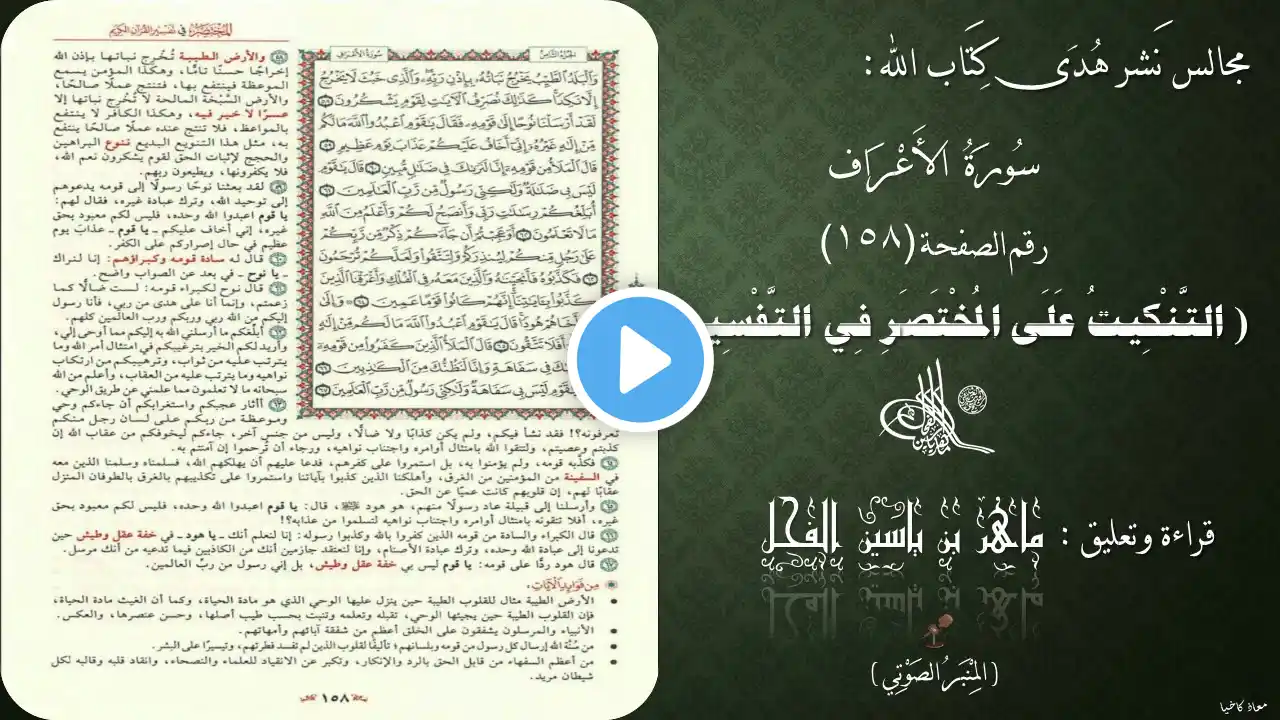 مجالس نَشر هُدَى كِتَاب الله :
سُورَةُ الأَعْرَاف
رقم الصفحة (١٥٨)
( التَّنْكِيتُ عَلَى المُخْتَصَرِ فِي التَّفْسِي
قراءة وتعليق : ماهر بن ياسين الفحل
(المِنْبَرُ الصَّوْتِي)
معاذ كاخيا
المختصر في تفسير القرآن الكريم
الجزء الثامن
سورة الأعراف
وَالْبَلَدُ الطَّيِّبُ يَخْرُجُ نَبَاتُهُ بِإِذْنِ رَبِّهِ وَالَّذِي خَبُثَ لَا يَخْرُجُ
إِلَّا نَكِدًا كَذَلِكَ نُصَرِّفُ الْآيَاتِ لِقَوْمٍ يَشْكُرُونَ ٥٨
لَقَدْ أَرْسَلْنَا نُوحًا إِلَى قَوْمِهِ فَقَالَ يَاقَوْمِ اعْبُدُوا اللَّهَ مَا لَكُم
مِّنْ إِلَهٍ غَيْرُهُ إِنِّي أَخَافُ عَلَيْكُمْ عَذَابَ يَوْمٍ عَظِيمٍ ٥٩
قَالَ الْمَلَأُ مِن قَوْمِهِ إِنَّا لَنَرَاكَ فِي ضَلَالٍ مُّبِينٍ ٦٠ قَالَ يَاقَوْمِ
لَيْسَ بِي ضَلَالَةٌ وَلَكِنِّي رَسُولٌ مِّن رَّبِّ الْعَالَمِينَ ٦١
أُبَلِّغُكُمْ رِسَالَاتِ رَبِّي وَأَنصَحُ لَكُمْ وَأَعْلَمُ مِنَ اللَّهِ
مَا لَا تَعْلَمُونَ ٦٢ أَوَعَجِبْتُمْ أَن جَاءَكُمْ ذِكْرٌ مِّن رَّبِّكُمْ
عَلَى رَجُلٍ مِّنكُمْ لِيُنذِرَكُمْ وَلِتَتَّقُوا وَلَعَلَّكُمْ تُرْحَمُونَ
٦٣ فَكَذَّبُوهُ فَأَنجَيْنَاهُ وَالَّذِينَ مَعَهُ فِي الْفُلْكِ وَأَغْرَقْنَا الَّذِينَ
كَذَّبُوا بِآيَاتِنَا إِنَّهُمْ كَانُوا قَوْمًا عَمِينَ ٦٤ وَإِلَى
أَخَاهُمْ هُودًا قَالَ يَاقَوْمِ اعْبُدُوا اللَّهَ مَا لَكُم مِّنْ إِلَهٍ
أَفَلَا تَتَّقُونَ ٦٥ قَالَ الْمَلَأُ الَّذِينَ كَفَرُوا مِن قَوْمِهِ
فِي سَفَاهَةٍ وَإِنَّا لَنَظُنُّكَ مِنَ الْكَاذِبِينَ ٦٦
يَاقَوْمِ لَيْسَ بِي سَفَاهَةٌ وَلَكِنِّي رَسُولٌ مِّن رَّبِّ الْعَالَمِينَ ٦٧
٥٨ والأرض الطيبة تُخْرِج نباتها بإذن الله
إخراجًا حسنًا تامًّا، وهكذا المؤمن يسمع
الموعظة فينتفع بها، فتنتج عملًا صالحًا،
والأرض السَّبْخَة المالحة لا تُخْرِج نباتها إلا
عسرًا لا خير فيه، وهكذا الكافر لا ينتفع
بالمواعظ، فلا تنتج عنده عملًا صالحًا ينتفع
به، مثل هذا التنويع البديع ننوع البراهين
والحجج لإثبات الحق لقوم يشكرون نعم الله،
فلا يكفرونها، ويطيعون ربهم.
٥٩ لقد بعثنا نوحًا رسولًا إلى قومه يدعوهم
إلى توحيد الله، وترك عبادة غيره، فقال لهم:
يا قوم اعبدوا الله وحده، فليس لكم معبود بحق
غيره، إني أخاف عليكم ـ يا قوم ـ عذابَ يوم
عظيم في حال إصراركم على الكفر.
٦٠ قال له سادة قومه وكبراؤهم: إنا لنراك
ـ يا نوح ـ في بعد عن الصواب واضح.
٦١ قال نوح لكبراء قومه: لست ضالًا كما
زعمتم، وإنما أنا على هدى من ربي، فأنا رسول
إليكم من الله ربي وربكم ورب العالمين كلهم.
٦٢ أبلّغكم ما أرسلني الله به إليكم مما أوحى إلي،
وأريد لكم الخير بترغيبكم في امتثال أمر الله وما
يترتب عليه من ثواب، وترهيبكم من ارتكاب
نواهيه وما يترتب عليه من العقاب، وأعلم من الله
سبحانه ما لا تعلمون مما علمني عن طريق الوحي.
٦٣ أأثار عجبكم واستغرابكم أن جاءكم وحي
وموعظة من ربكم على لسان رجل منكم
تعرفونه؟! فقد نشأ فيكم، ولم يكن كذابًا ولا ضالًّا، وليس من جنس آخر، جاءكم ليخوفكم من عقاب الله إن
كذبتم وعصيتم، ولتتقوا الله بامتثال أوامره واجتناب نواهيه، ورجاء أن تُرحموا إن آمنتم به.
٦٤ فكذَّبه قومه، ولم يؤمنوا به، بل استمروا على كفرهم، فدعا عليهم أن يهلكهم الله، فسلمناه وسلمنا الذين معه
في السفينة من المؤمنين من الغرق، وأهلكنا الذين كذبوا بآياتنا واستمروا على تكذيبهم بالغرق بالطوفان المنزل
عقابًا لهم، إن قلوبهم كانت عميًا عن الحق.
٦٥ وأرسلنا إلى قبيلة عاد رسولًا منهم، هو هود ﷺ، قال: يا قوم اعبدوا الله وحده، فليس لكم معبود بحق
غيره، أفلا تتقونه بامتثال أوامره واجتناب نواهيه لتسلموا من عذابه؟!
٦٦ قال الكبراء والسادة من قومه الذين كفروا بالله وكذبوا رسوله: إنا لنعلم أنك ـ يا هود ـ في خفة عقل وطيش حين
تدعونا إلى عبادة الله وحده، وترك عبادة الأصنام، وإنا لنعتقد جازمين أنك من الكاذبين فيما تدعيه من أنك مرسل.
٦٧ قال هود ردًّا على قومه: يا قوم ليس بي خفة عقل وطيش، بل إني رسول من ربِّ العالمين.
من فوائد الآيات:
• الأرض الطيبة مثال للقلوب الطيبة حين ينزل عليها الوحي الذي هو مادة الحياة، وكما أن الغيث مادة الحياة،
فإن القلوب الطيبة حين يجيئها الوحي، تقبله وتعلمه وتنبت بحسب طيب أصلها، وحسن عنصرها، والعكس.
• الأنبياء والمرسلون يشفقون على الخلق أعظم من شفقة آبائهم وأمهاتهم.
• من سُنَّة الله إرسال كل رسول من قومه وبلسانهم؛ تأليفًا لقلوب الذين لم تفسد فطرتهم، وتيسيرًا على البشر.
• من أعظم السفهاء من قابل الحق بالرد والإنكار، وتكبر عن الانقياد للعلماء والنصحاء، وانقاد قلبه وقالبه لكل
شيطان مريد.
١٥٨